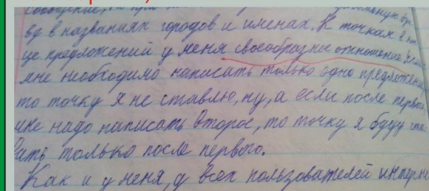 в названиях городов и именах. К точкам в
це предложений у меня своеобразное отношение.
мне необходимо написать только одно предложение
то точку я не ставлю, ну, а если после первого
мне надо написать второе, то точку я буду ста
вать только после первого.
Как и у меня, у всех пользователей интерн